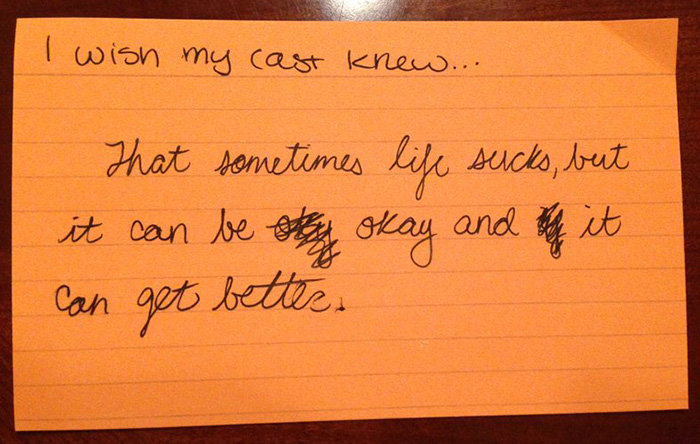 I wish my cast knew...
That sometimes life sucks, but
it can be okay and it
can get better.